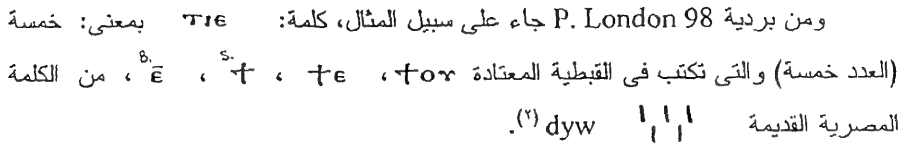 ومن بردية P. London 98 جاء على سبيل المثال، كلمة: ⲧⲓⲉ بمعنى: خمسة
(العدد خمسة) والتى تكتب فى القبطية المعتادة ϯⲟⲩ، ϯⲉ ، S. ϯ ، B. ⲉ̅ ، من الكلمة
المصرية القديمة 𓏾 dyw (٢).